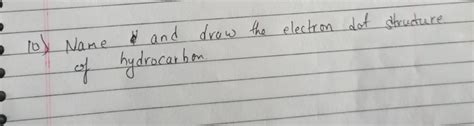 10) Name and draw the electron dot structure
of hydrocarbon.